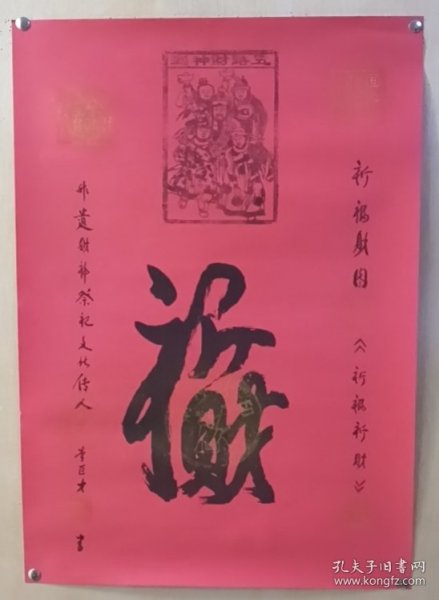 五路財神圖
祈福財图
《祈福祈财》
非遗财神祭祀文化传人
书
孔夫子旧书网
www.kongfz.com